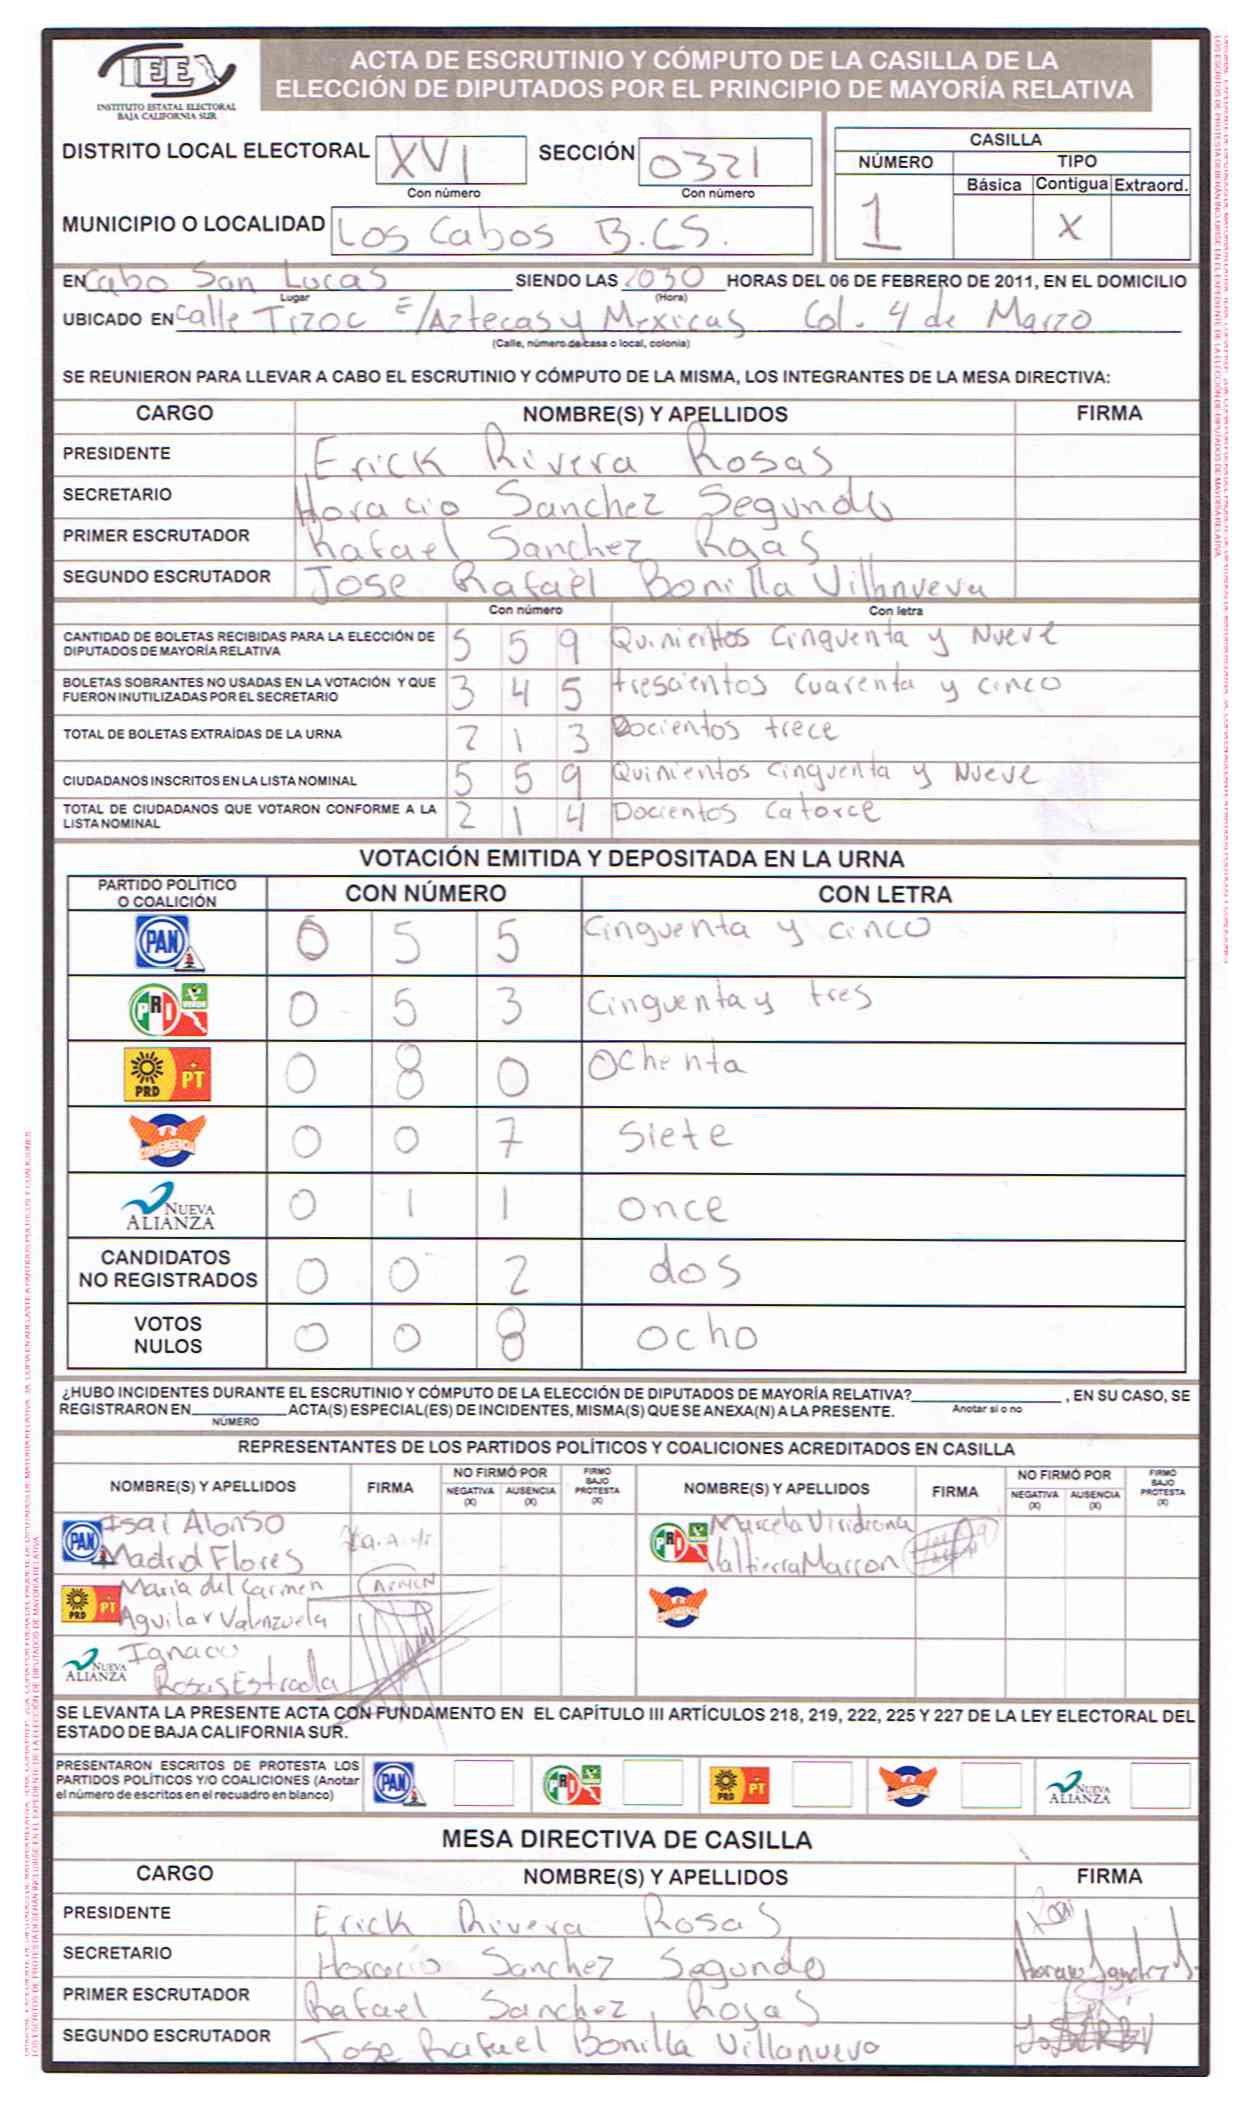 IEE
INSTITUTO ESTATAL ELECTORAL
BAJA CALIFORNIA SUR
ACTA DE ESCRUTINIO Y CÓMPUTO DE LA CASILLA DE LA
ELECCIÓN DE DIPUTADOS POR EL PRINCIPIO DE MAYORÍA RELATIVA
DISTRITO LOCAL ELECTORAL XVI SECCIÓN 0321
Con número Con número
MUNICIPIO O LOCALIDAD Los Cabos B.CS.
CASILLA
NÚMERO TIPO
Básica Contigua Extraord.
1 X
EN Cabo San Lucas SIENDO LAS 2030 HORAS DEL 06 DE FEBRERO DE 2011, EN EL DOMICILIO
Lugar (Hora)
UBICADO EN Calle Tizoc E/Aztecas y Mexicas Col. 4 de Marzo
(Calle, número de casa o local, colonia)
SE REUNIERON PARA LLEVAR A CABO EL ESCRUTINIO Y CÓMPUTO DE LA MISMA, LOS INTEGRANTES DE LA MESA DIRECTIVA:
CARGO NOMBRE(S) Y APELLIDOS FIRMA
PRESIDENTE Erick Rivera Rosas
SECRETARIO Horacio Sanchez Segundo
PRIMER ESCRUTADOR Rafael Sanchez
SEGUNDO ESCRUTADOR Jose Rafael Bonilla Villanueva
Con número Con letra
CANTIDAD DE BOLETAS RECIBIDAS PARA LA ELECCIÓN DE
DIPUTADOS DE MAYORÍA RELATIVA 5 5 9 Quinientos Cinquenta y Nueve
BOLETAS SOBRANTES NO USADAS EN LA VOTACIÓN Y QUE
FUERON INUTILIZADAS POR EL SECRETARIO 3 4 5 trescientos cuarenta y cinco
TOTAL DE BOLETAS EXTRAÍDAS DE LA URNA 2 1 3 Docientos trece
CIUDADANOS INSCRITOS EN LA LISTA NOMINAL 5 5 9 Quinientos Cinquenta y Nueve
TOTAL DE CIUDADANOS QUE VOTARON CONFORME A LA
LISTA NOMINAL 2 1 4 Docientos Catorce
VOTACIÓN EMITIDA Y DEPOSITADA EN LA URNA
PARTIDO POLÍTICO
O COALICIÓN CON NÚMERO CON LETRA
PAN 0 5 5 Cinquenta y cinco
PRI VERDE 0 5 3 Cinquenta y tres
PRD PT 0 8 0 Ochenta
CONVERGENCIA 0 0 7 Siete
NUEVA
ALIANZA 0 1 1 once
CANDIDATOS
NO REGISTRADOS 0 0 2 dos
VOTOS
NULOS 0 0 8 ocho
¿HUBO INCIDENTES DURANTE EL ESCRUTINIO Y CÓMPUTO DE LA ELECCIÓN DE DIPUTADOS DE MAYORÍA RELATIVA? , EN SU CASO, SE
Anotar si o no
REGISTRARON EN ACTA(S) ESPECIAL(ES) DE INCIDENTES, MISMA(S) QUE SE ANEXA(N) A LA PRESENTE.
NÚMERO
REPRESENTANTES DE LOS PARTIDOS POLÍTICOS Y COALICIONES ACREDITADOS EN CASILLA
NOMBRE(S) Y APELLIDOS FIRMA NO FIRMÓ POR NEGATIVA (X) AUSENCIA (X) FIRMÓ BAJO PROTESTA (X)
NOMBRE(S) Y APELLIDOS FIRMA NO FIRMÓ POR NEGATIVA (X) AUSENCIA (X) FIRMÓ BAJO PROTESTA (X)
PAN Isai Alonso
Madrid Flores
PRI Marcela
Valtierra Marron
PRD PT Maria del Carmen
Aguilar Valenzuela
CONVERGENCIA
NUEVA
ALIANZA Ignacio
Rosas Estrada
SE LEVANTA LA PRESENTE ACTA CON FUNDAMENTO EN EL CAPÍTULO III ARTÍCULOS 218, 219, 222, 225 Y 227 DE LA LEY ELECTORAL DEL
ESTADO DE BAJA CALIFORNIA SUR.
PRESENTARON ESCRITOS DE PROTESTA LOS
PARTIDOS POLÍTICOS Y/O COALICIONES (Anotar
el número de escritos en el recuadro en blanco)
PAN PRI PRD PT CONVERGENCIA NUEVA ALIANZA
MESA DIRECTIVA DE CASILLA
CARGO NOMBRE(S) Y APELLIDOS FIRMA
PRESIDENTE Erick Rivera Rosas
SECRETARIO Horacio Sanchez Segundo
PRIMER ESCRUTADOR Rafael Sanchez Rosas
SEGUNDO ESCRUTADOR Jose Rafael Bonilla Villanueva